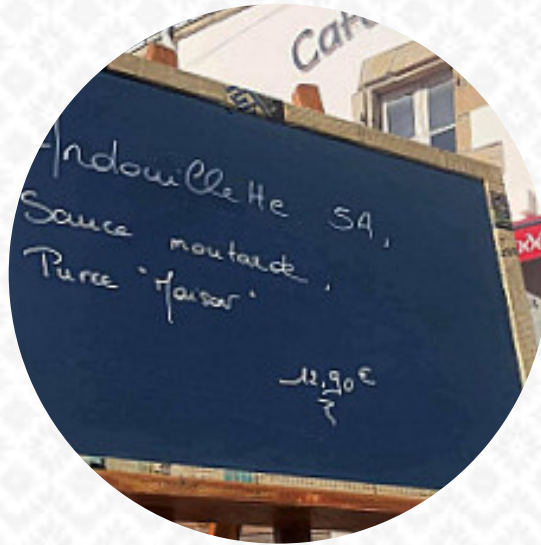 Café
Andouillette 5A,
Sauce moutarde,
Puree "Maison"
12,90€